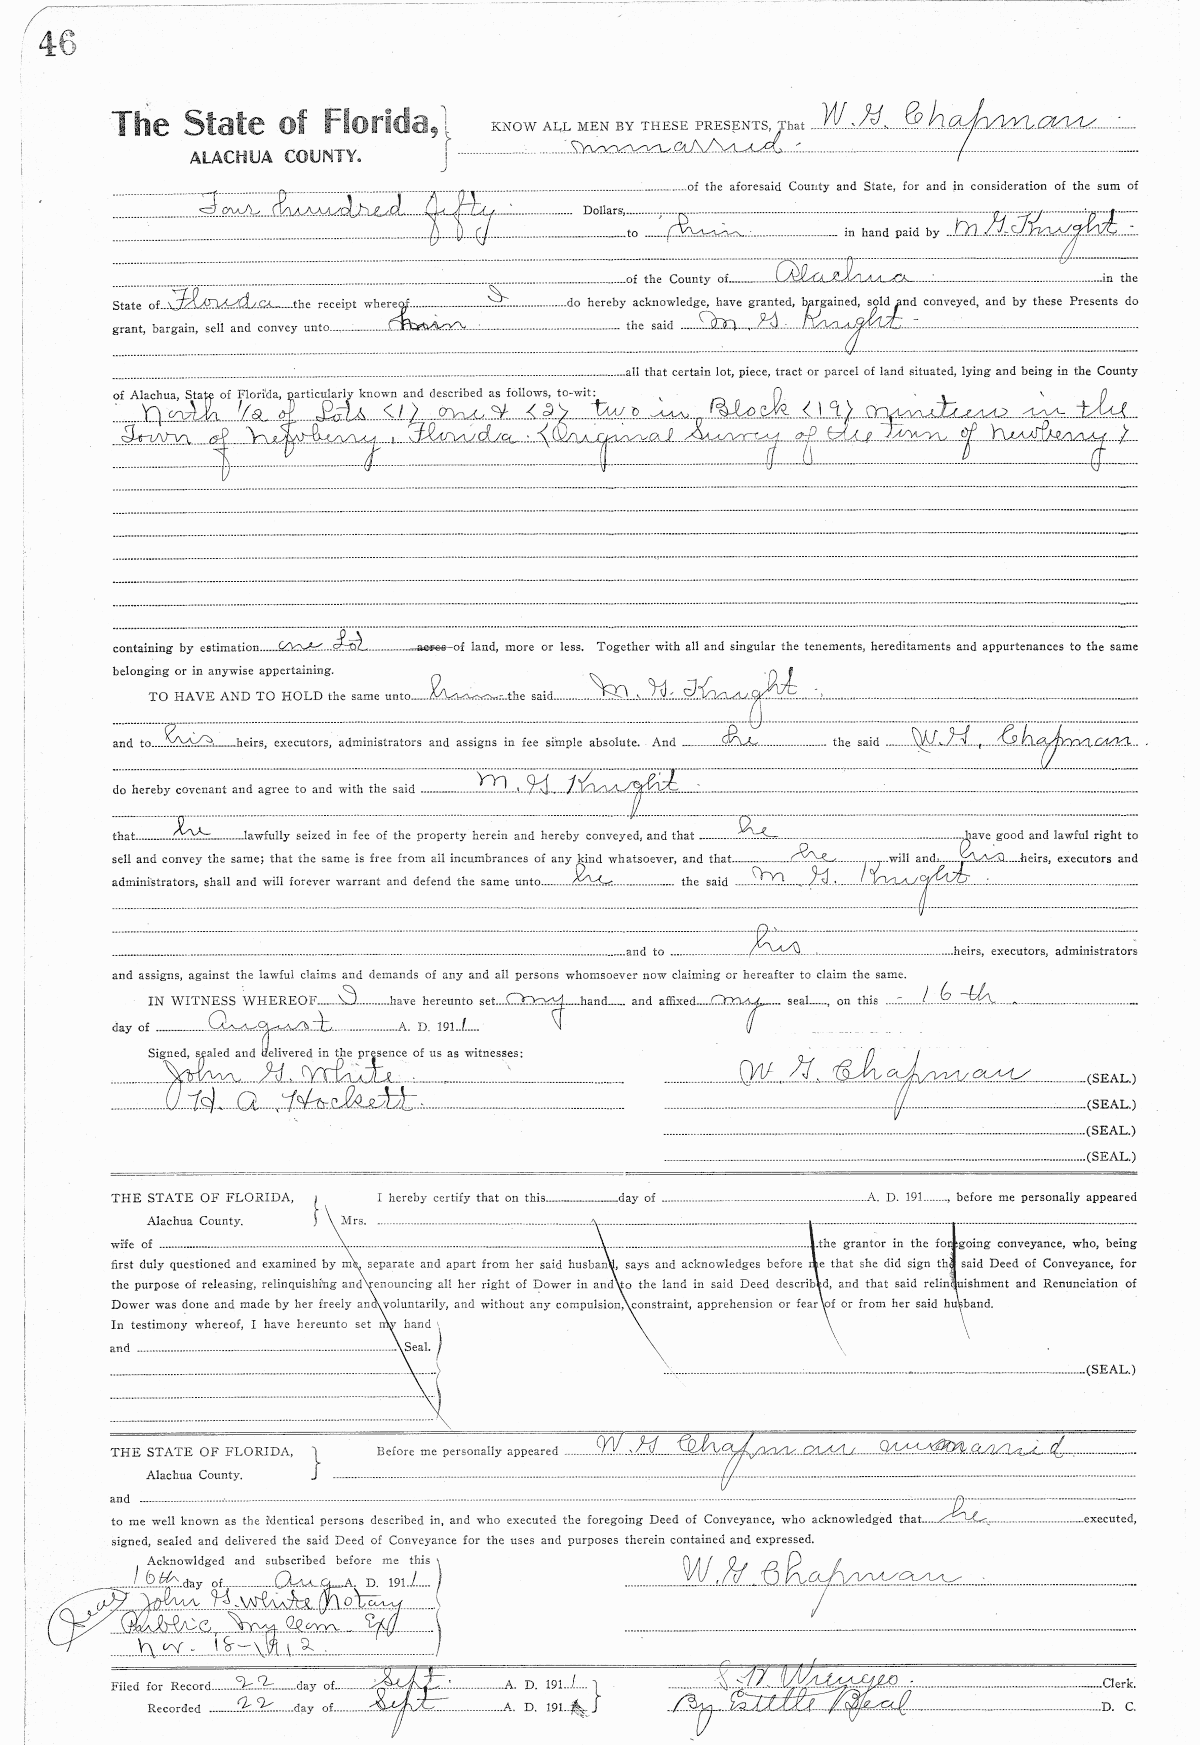 46
The State of Florida, KNOW ALL MEN BY THESE PRESENTS, That W. G. Chapman
ALACHUA COUNTY. unmarried
of the aforesaid County and State, for and in consideration of the sum of
Four hundred fifty Dollars,
to him in hand paid by M G. Knight
of the County of Alachua in the
State of Florida the receipt whereof I do hereby acknowledge, have granted, bargained, sold and conveyed, and by these Presents do
grant, bargain, sell and convey unto him the said M. G. Knight
all that certain lot, piece, tract or parcel of land situated, lying and being in the County
of Alachua, State of Florida, particularly known and described as follows, to-wit:
North 1/2 of Lots <1> one & <2> two in Block <19> nineteen in the
Town of Newberry, Florida. <Original Survey of the Town of Newberry>
containing by estimation one Lot acres of land, more or less. Together with all and singular the tenements, hereditaments and appurtenances to the same
belonging or in anywise appertaining.
TO HAVE AND TO HOLD the same unto him the said M. G. Knight
and to his heirs, executors, administrators and assigns in fee simple absolute. And he the said W. G. Chapman
do hereby covenant and agree to and with the said M. G. Knight
that he lawfully seized in fee of the property herein and hereby conveyed, and that he have good and lawful right to
sell and convey the same; that the same is free from all incumbrances of any kind whatsoever, and that he will and his heirs, executors and
administrators, shall and will forever warrant and defend the same unto he the said M G. Knight
and to his heirs, executors, administrators
and assigns, against the lawful claims and demands of any and all persons whomsoever now claiming or hereafter to claim the same.
IN WITNESS WHEREOF I have hereunto set my hand and affixed my seal, on this 16th
day of August A. D. 1911
Signed, sealed and delivered in the presence of us as witnesses:
John G. White W. G. Chapman (SEAL.)
H. A. Hockett (SEAL.)
(SEAL.)
(SEAL.)
THE STATE OF FLORIDA, I hereby certify that on this day of A. D. 191 , before me personally appeared
Alachua County. Mrs.
wife of the grantor in the foregoing conveyance, who, being
first duly questioned and examined by me, separate and apart from her said husband, says and acknowledges before me that she did sign the said Deed of Conveyance, for
the purpose of releasing, relinquishing and renouncing all her right of Dower in and to the land in said Deed described, and that said relinquishment and Renunciation of
Dower was done and made by her freely and voluntarily, and without any compulsion, constraint, apprehension or fear of or from her said husband.
In testimony whereof, I have hereunto set my hand
and Seal.
(SEAL.)
THE STATE OF FLORIDA, Before me personally appeared W. G Chapman unmarried
Alachua County.
and
to me well known as the identical persons described in, and who executed the foregoing Deed of Conveyance, who acknowledged that he executed,
signed, sealed and delivered the said Deed of Conveyance for the uses and purposes therein contained and expressed.
Acknowldged and subscribed before me this
16th day of Aug A. D. 1911 W. G. Chapman
Seal John G. White Notary
Public, My Com. Ex
Nov. 18-1912.
Filed for Record 22 day of Sept. A. D. 1911 Clerk.
Recorded 22 day of Sept A. D. 191 By Estelle Beal D. C.